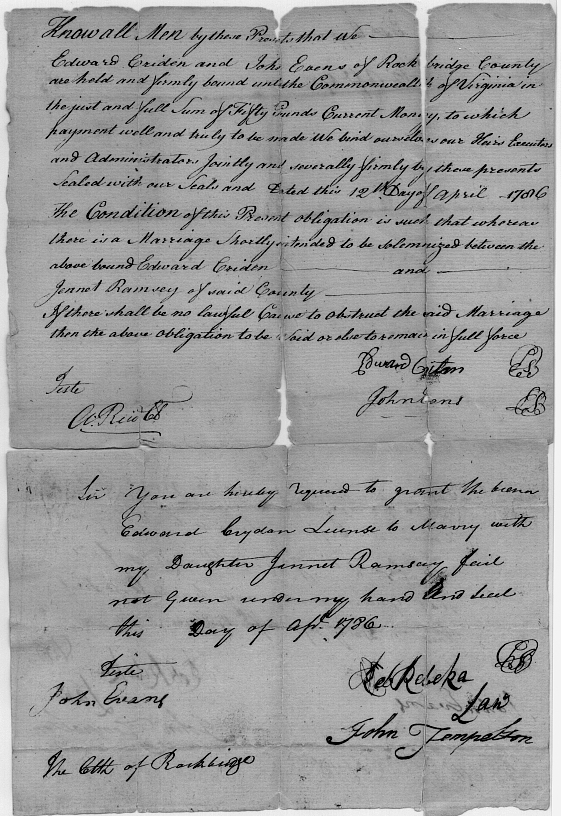 Know all Men by these Presents that we
Edward Criden and John Evens of Rockbridge County
are held and firmly bound unto the Commonwealth of Virginia in
the just and full Sum of Fifty Pounds Current Money, to which
payment well and truly to be made We bind ourselves our Heirs Executors
and Administrators Jointly and severally firmly by these presents
Sealed with our Seals and Dated this 12th Day of April 1786
The Condition of this Present obligation is such that whereas
there is a Marriage Shortly intended to be Solemnized between the
above bound Edward Criden and
Jennet Ramsey of said County
If there shall be no lawful Cause to obstruct the said Marriage
then the above obligation to be Void or else to remain in full force
Edward
John
Teste
A. Reid
Sir You are hereby required to grant the
Edward Crydon License to Marry with
my Daughter Jennet Ramsay fail
not Given under my hand and Seal
this Day of Apr. 1786
Teste
John Evans
Rebeka
Law
John Tempelton
The Clk of Rockbridge